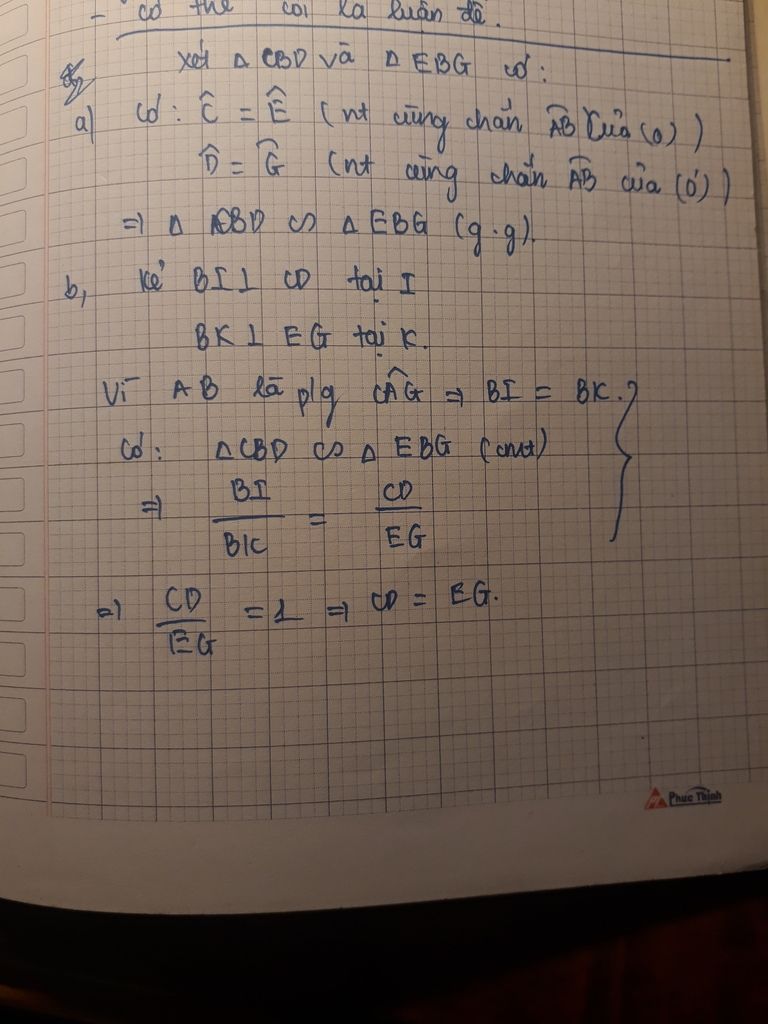 - có thể coi là luận đề.
xét Δ CBD và Δ EBG có:
a) Có: Ĉ = Ê (nt cùng chắn A͡B của (O))
D̂ = Ĝ (nt cùng chắn A͡B của (O'))
=> Δ CBD ∽ Δ EBG (g.g).
b, Kẻ BI ⊥ CD tại I
BK ⊥ EG tại K.
Vì AB là p/g CÂG => BI = BK.
Có: Δ CBD ∽ Δ EBG (cmt)
=> BI/BK = CD/EG
=> CD/EG = 1 => CD = EG.
Phuc Thinh